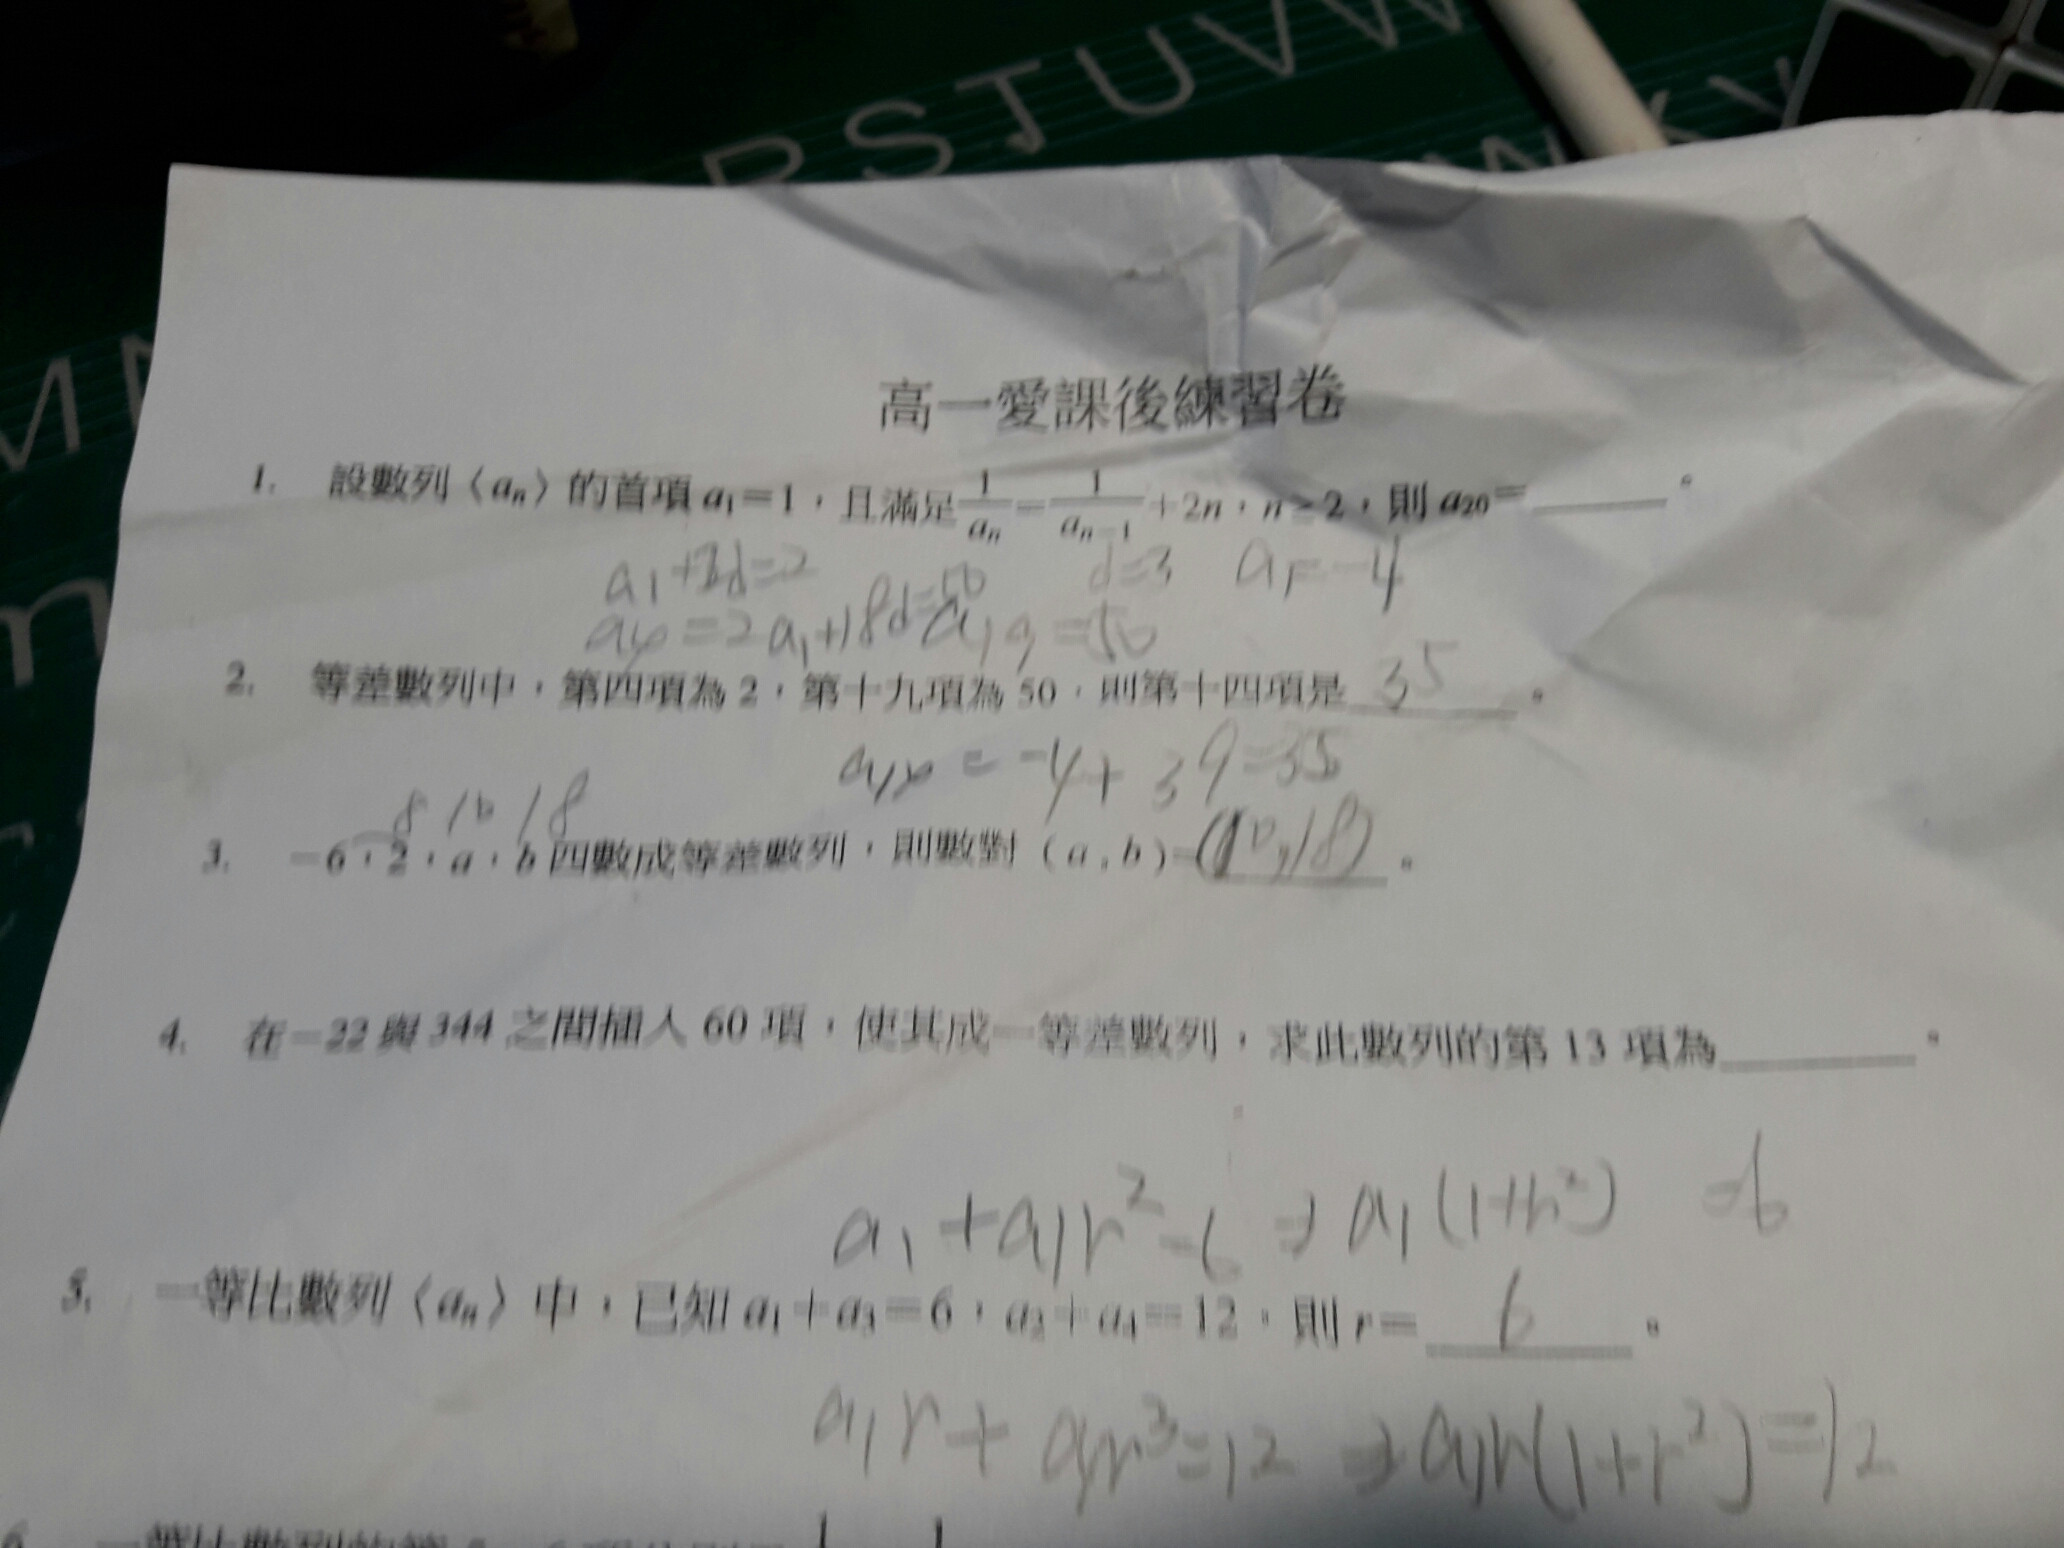 RSTUVW
高一愛課後練習卷
1. 設數列〈aₙ〉的首項 a₁=1，且滿足 1/aₙ = 1/aₙ₋₁ + 2n，n≥2，則 a₂₀=______。
d=3 a₁=-4
=50
2. 等差數列中，第四項為 2，第十九項為 50，則第十四項是 35 。
= -4+39=35
8 10 18
3. -6，2，a，b 四數成等差數列，則數對（a，b）=(10,18)。
4. 在-22與344之間插入60項，使其成一等差數列，求此數列的第13項為______。
a₁+a₁r²=6 ⇒ a₁(1+r²) =6
5. 一等比數列〈aₙ〉中，已知 a₁+a₃=6，a₂+a₄=12，則 r= 6 。
a₁r+a₁r³=12 ⇒ a₁r(1+r²)=12